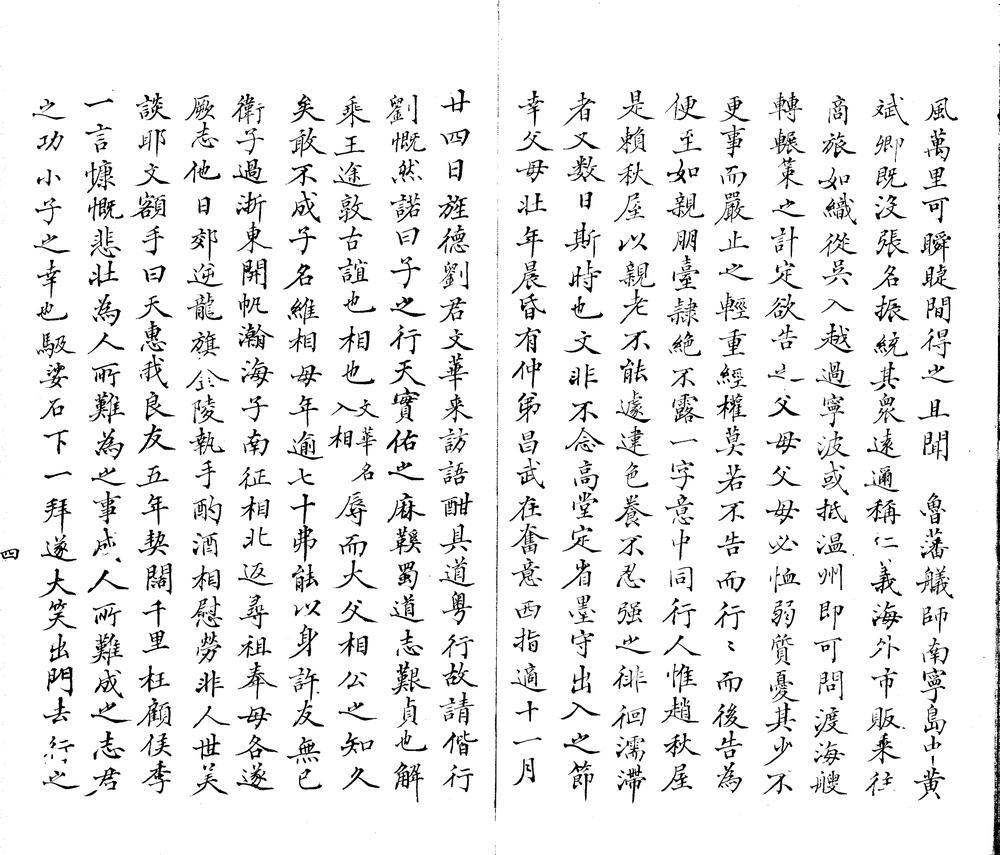 風萬里可瞬睫間得之且聞　魯藩艤師南寧島中黃
斌卿既沒張名振統其衆遠邇稱仁義海外市販乘往
商旅如織從吳入越過寧波或抵温州即可問渡海艘
轉輾策之計定欲告之父母父母必恤弱質憂其少不
更事而嚴止之輕重經權莫若不告而行〻而後告為
便至如親朋臺隸絕不露一字意中同行人惟趙秋屋
是賴秋屋以親老不能遽違色養不忍强之徘徊濡滯
者又数日斯時也文非不念高堂定省墨守出入之節
幸父母壯年晨昏有仲弟昌武在奮意西指適十一月
廿四日旌德劉君文華来訪語酣具道粤行故請偕行
劉慨然諾曰子之行天實佑之麻鞵蜀道志艱貞也解
乘王途敦古誼也相也入相文華名辱而大父相公之知久
矣敢不成子名維相母年逾七十弗能以身許友無已
衛子過浙東開帆瀚海子南征相北返尋祖奉母各遂
厥志他日郊逆龍旗金陵執手酌酒相慰勞非人世美
談耶文額手曰天惠我良友五年契闊千里枉顧侯季
一言慷慨悲壯為人所難為之事成人所難成之志君
之功小子之幸也馺娑石下一拜遂大笑出門去行之
四